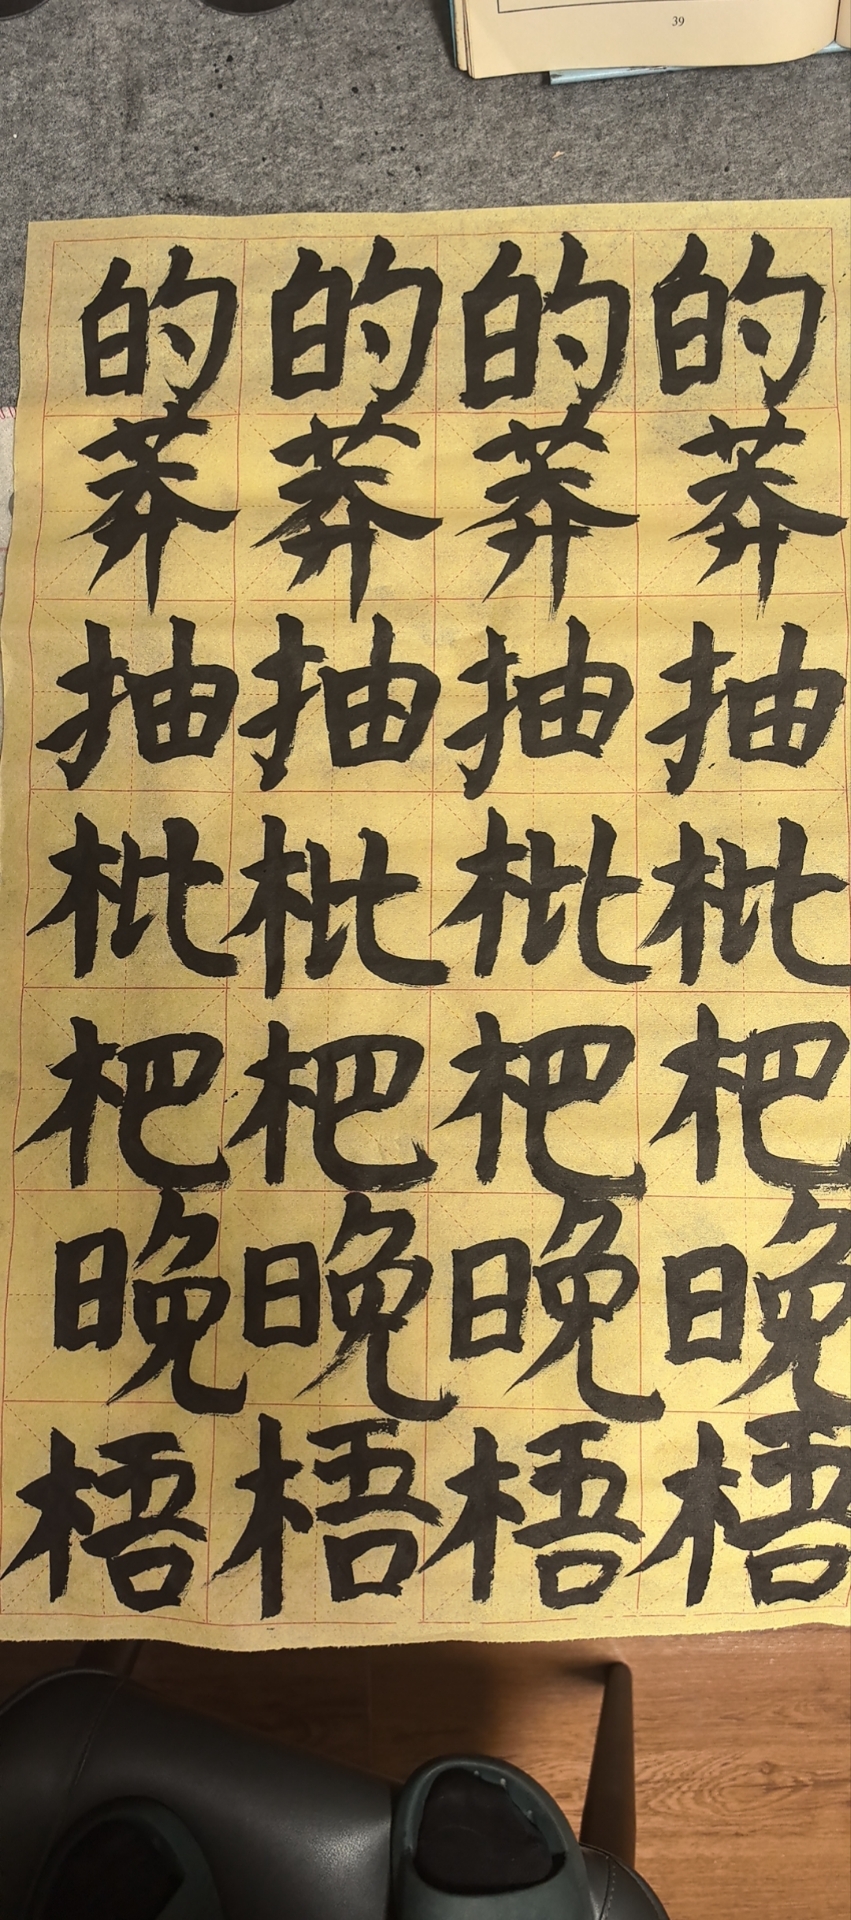 39
的的的的
莽莽莽莽
抽抽抽抽
枇枇枇枇
杷杷杷杷
晚晚晚晚
梧梧梧梧